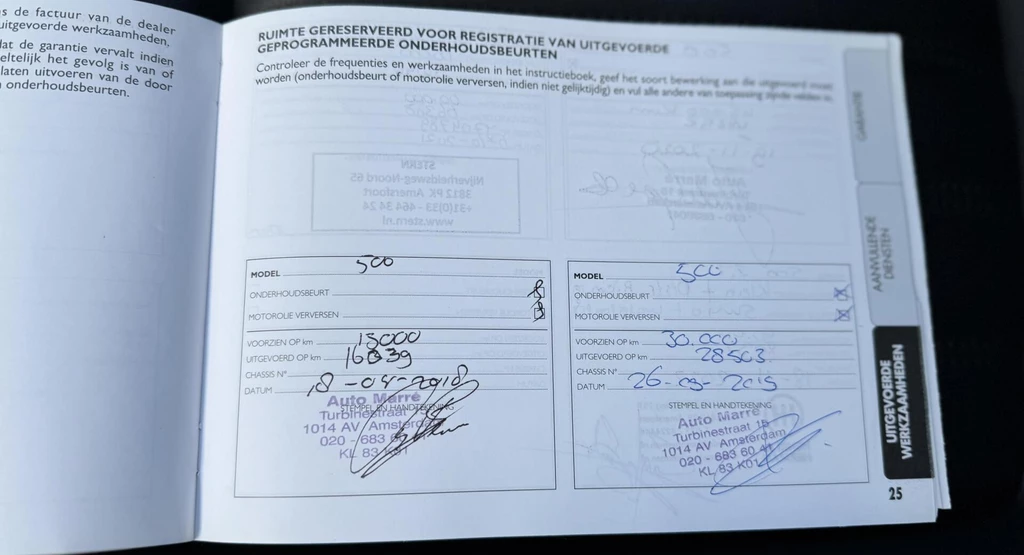 s de factuur van de dealer
uitgevoerde werkzaamheden,
dat de garantie vervalt indien
eltelijk het gevolg is van of
laten uitvoeren van de door
onderhoudsbeurten.
RUIMTE GERESERVEERD VOOR REGISTRATIE VAN UITGEVOERDE
GEPROGRAMMEERDE ONDERHOUDSBEURTEN
Controleer de frequenties en werkzaamheden in het instructieboek, geef het soort bewerking aan die uitgevoerd moet
worden (onderhoudsbeurt of motorolie verversen, indien niet gelijktijdig) en vul alle andere van toepassing zijnde velden in.
STERN
Nijverheidsweg-Noord 65
3812 PK Amersfoort
+31(0)33 - 464 34 24
www.stern.nl
MODEL 500
ONDERHOUDSBEURT
MOTOROLIE VERVERSEN
VOORZIEN OP km 15000
UITGEVOERD OP km 16839
CHASSIS N°
DATUM 18-04-2018
STEMPEL EN HANDTEKENING
Auto Marre
Turbinestraat 15
1014 AV Amsterdam
020 - 683 6
KL 83 K01
MODEL 500
ONDERHOUDSBEURT
MOTOROLIE VERVERSEN
VOORZIEN OP km 30.000
UITGEVOERD OP km 28503
CHASSIS N°
DATUM 26-03-2019
STEMPEL EN HANDTEKENING
Auto Marre
Turbinestraat 15
1014 AV Amsterdam
020 - 683 60 41
KL 83 K01
GARANTIE
AANVULLENDE
DIENSTEN
UITGEVOERDE
WERKZAAMHEDEN
25